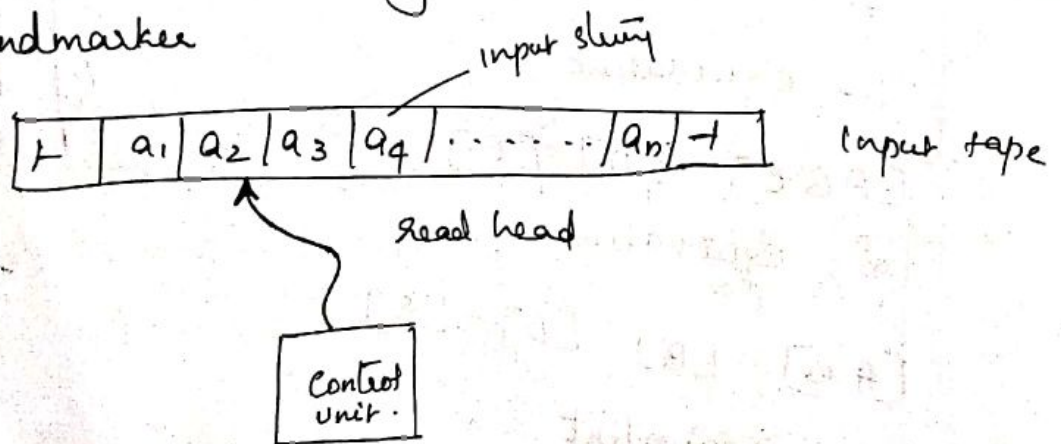 ndmarker
input string
⊢ a₁ a₂ a₃ a₄ ....... aₙ ⊣
Input tape
read head
Control
unit.